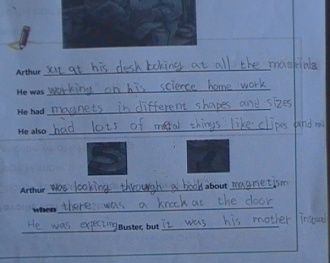 Arthur sat at his desk looking at all the materials
He was working on his science home work
He had magnets in different shapes and sizes
He also had lots of metal things like clipes and
Arthur was looking through a book about magnetism
when there was a knock at the door
He was expecting Buster, but it was his mother